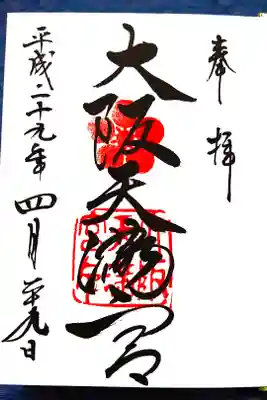 奉拝
大阪天満宮
平成二十九年四月二十九日